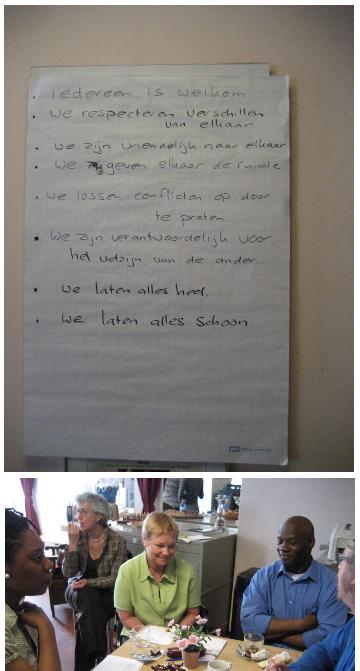 . iedereen is welkom
. we respecteren verschillen
van elkaar
. we zijn vriendelijk naar elkaar
. we geven elkaar de ruimte
. we lossen conflicten op door
te praten
. we zijn verantwoordelijk voor
het welzijn van de ander.
. we laten alles heel.
. we laten alles schoon